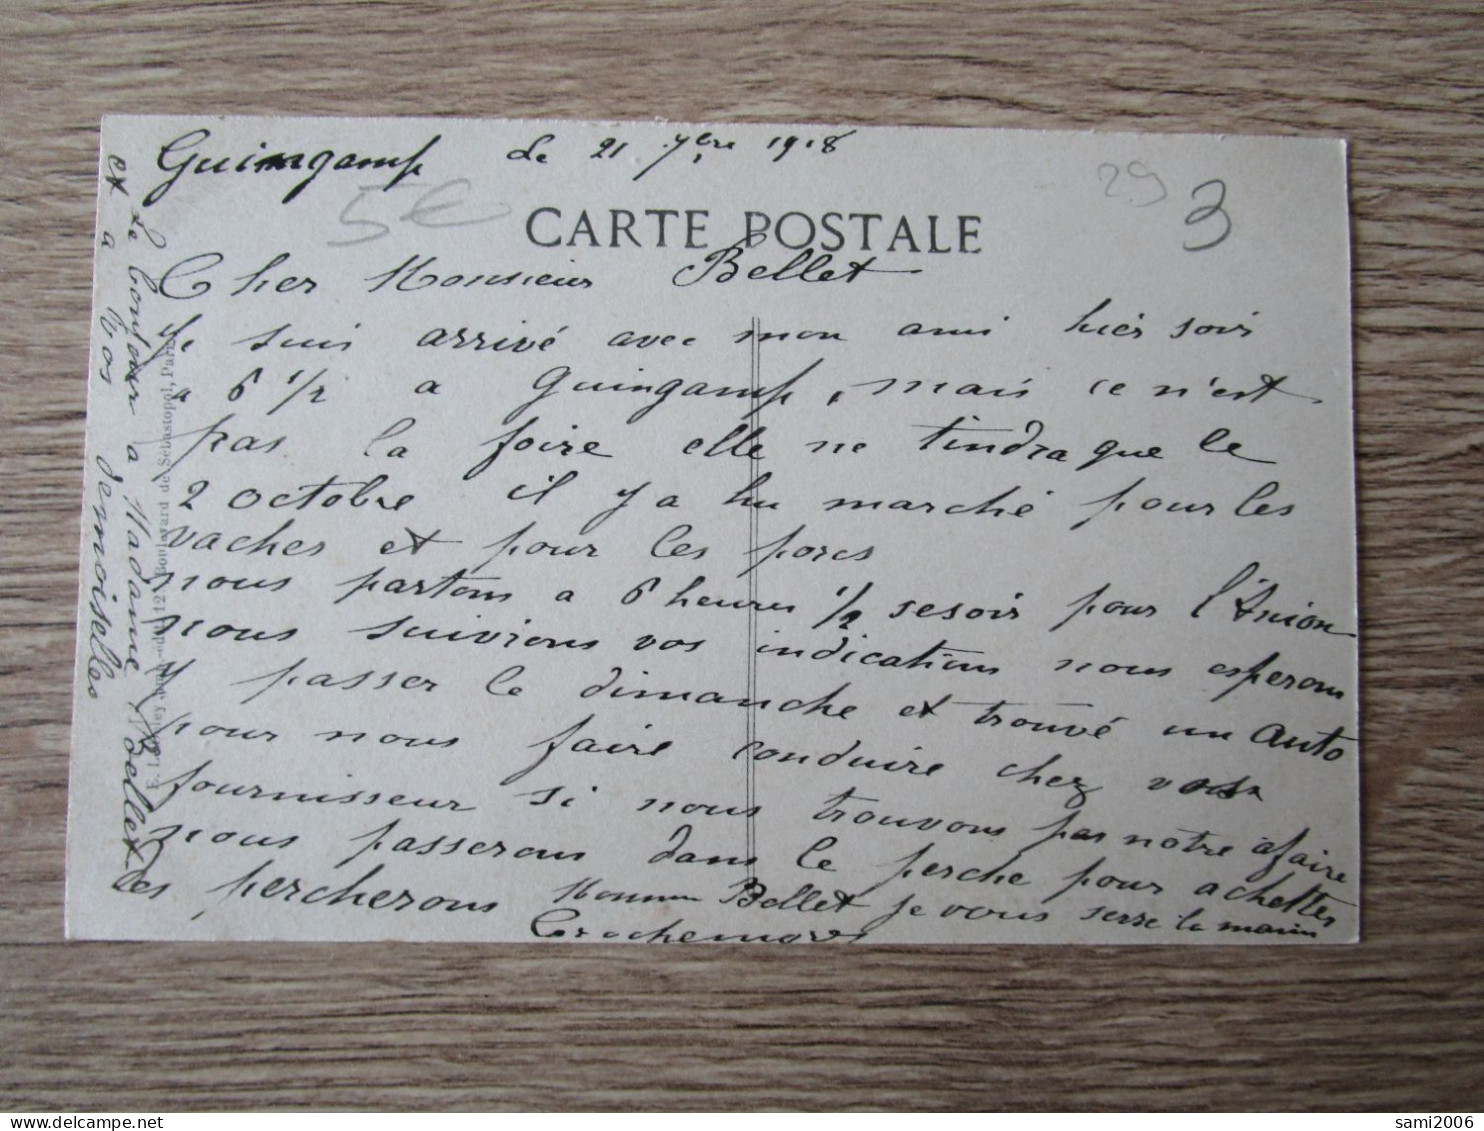 Guimgamp Le 21 7bre 1918
5€
29
3
CARTE POSTALE
Cher Monsieur Bellet
Je suis arrivé avec mon ami hièr soir
a 6 1/2 a Guingamp, mais ce n'est
pas la foire elle ne tindra que le
2 octobre il y a hu marché pour les
vaches et pour les porcs
nous partons a 6 heures 1/2 sesoir pour l'Union
nous suivions vos indications nous esperons
y passer le dimanche et trouvé un auto
pour nous faire conduire chez vos
fournisseur si nous trouvons pas notre afaire
nous passerons dans le perche pour achetter
des percherons Monsieur Bellet je vous serre la main
Le bonjour a Madame Bellet
et a vos demoiselles
boulevard de Sébastopol, Paris
sami2006